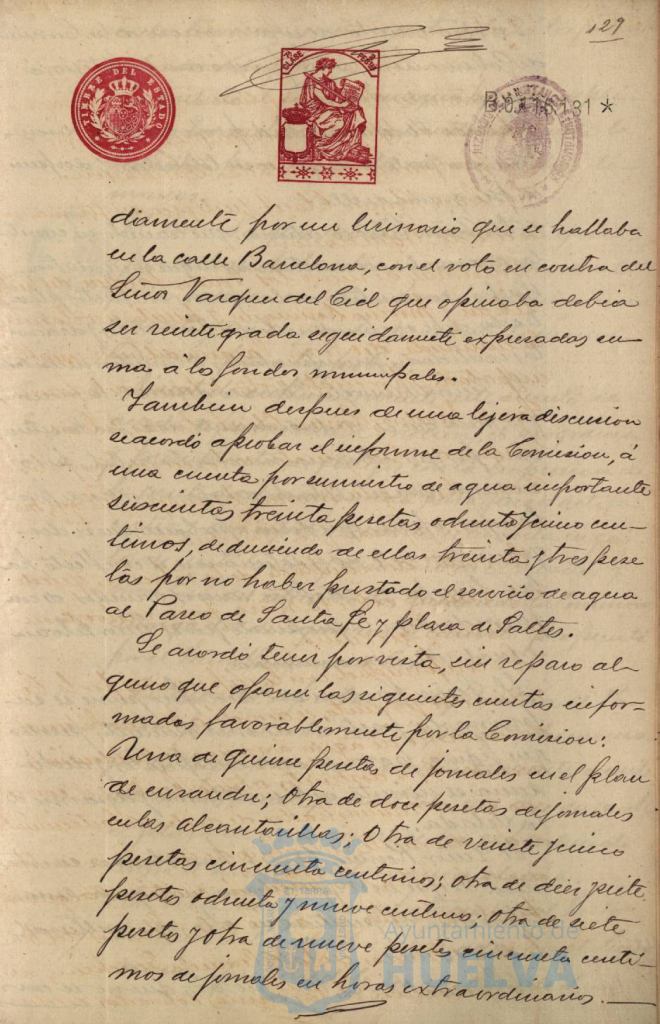 129
TIMBRE DEL ESTADO
7ª CLASE
B.0.115.181 *
diamente por un Urinario que se hallaba
en la calle Barcelona, con el voto en contra del
Señor Vazquez del Cid que opinaba debia
ser reintegrada seguidamente expresadas su-
ma á los fondos municipales.
Tambien despues de una lijera discusion
se acordó aprobar el informe de la Comision, á
una cuenta por suministro de agua importante
seiscientas treinta pesetas ochenta y cinco cen-
timos, deduciendo de ellas treinta y tres pese
tas por no haber prestado el servicio de agua
al Paseo de Santa Fe y plaza de Saltes.
Se acordó tener por vista, sin reparo al-
guno que oponer las siguientes cuentas infor-
madas favorablemente por la Comision:
Una de quince pesetas de jornales en el plan
de ensanche; Otra de doce pesetas de jornales
en las alcantarillas; Otra de veinte y cinco
pesetas cincuenta centimos; otra de diez y siete
pesetas ochenta y nueve centimos; otra de siete
pesetas y otra de nueve pesetas cincuenta centi-
mos de jornales en horas extraordinarias.
Ayuntamiento de
HUELVA